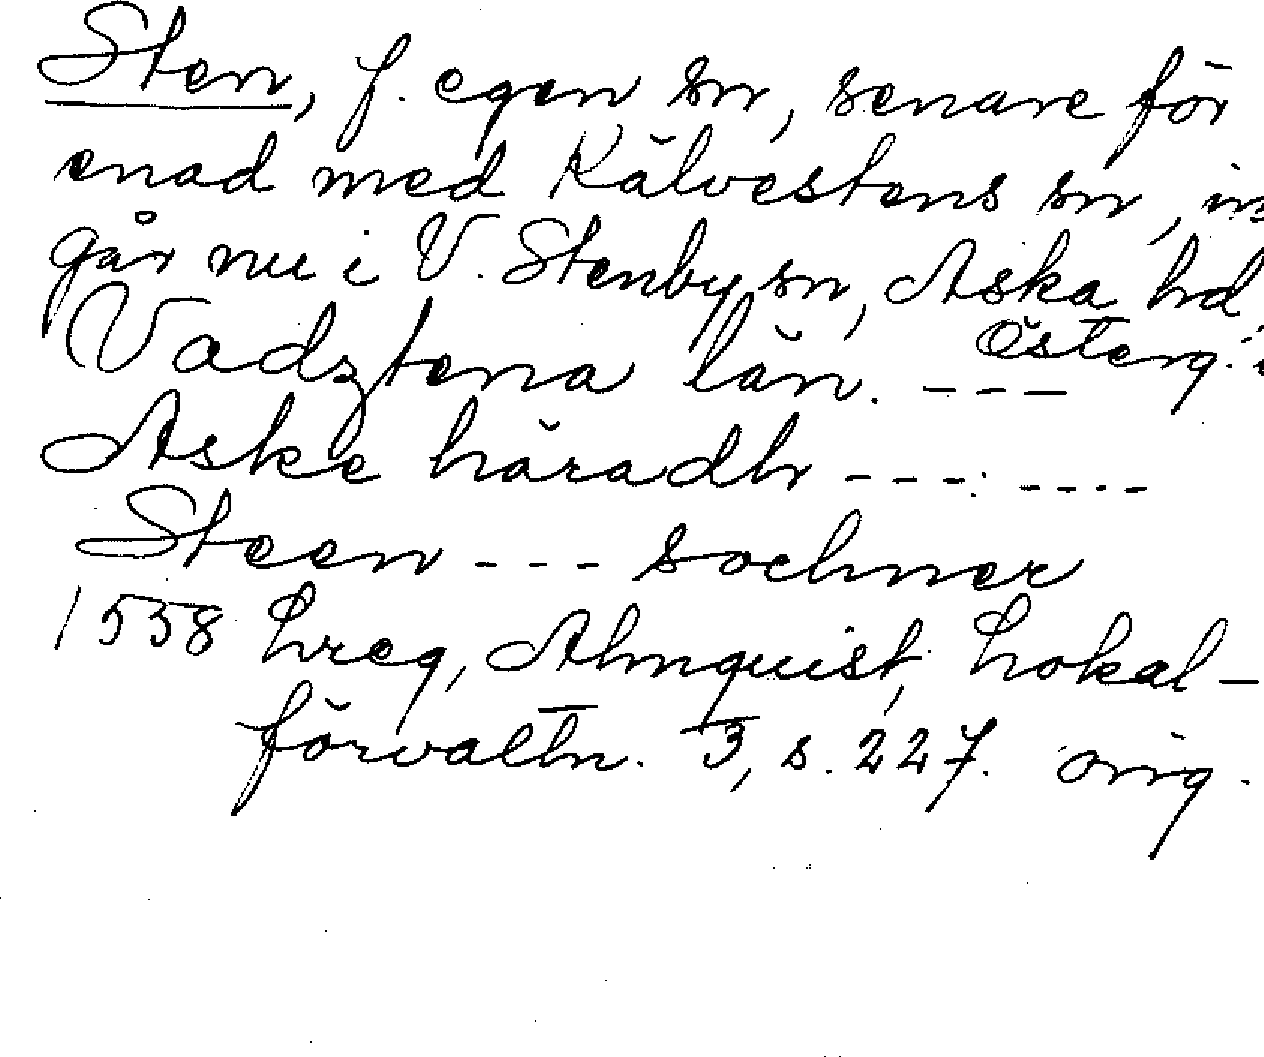 Sten, f. egen sn, senare för
enad med Kälvestens sn, in
går nu i V. Stenby sn, Aska hd,
Österg.
Vadztena län. ---
Aske häradh ---. ----
Steen --- sochner
1558 Lreg, Almquist, Lokal-
förvaltn. 3, s. 227. orig.